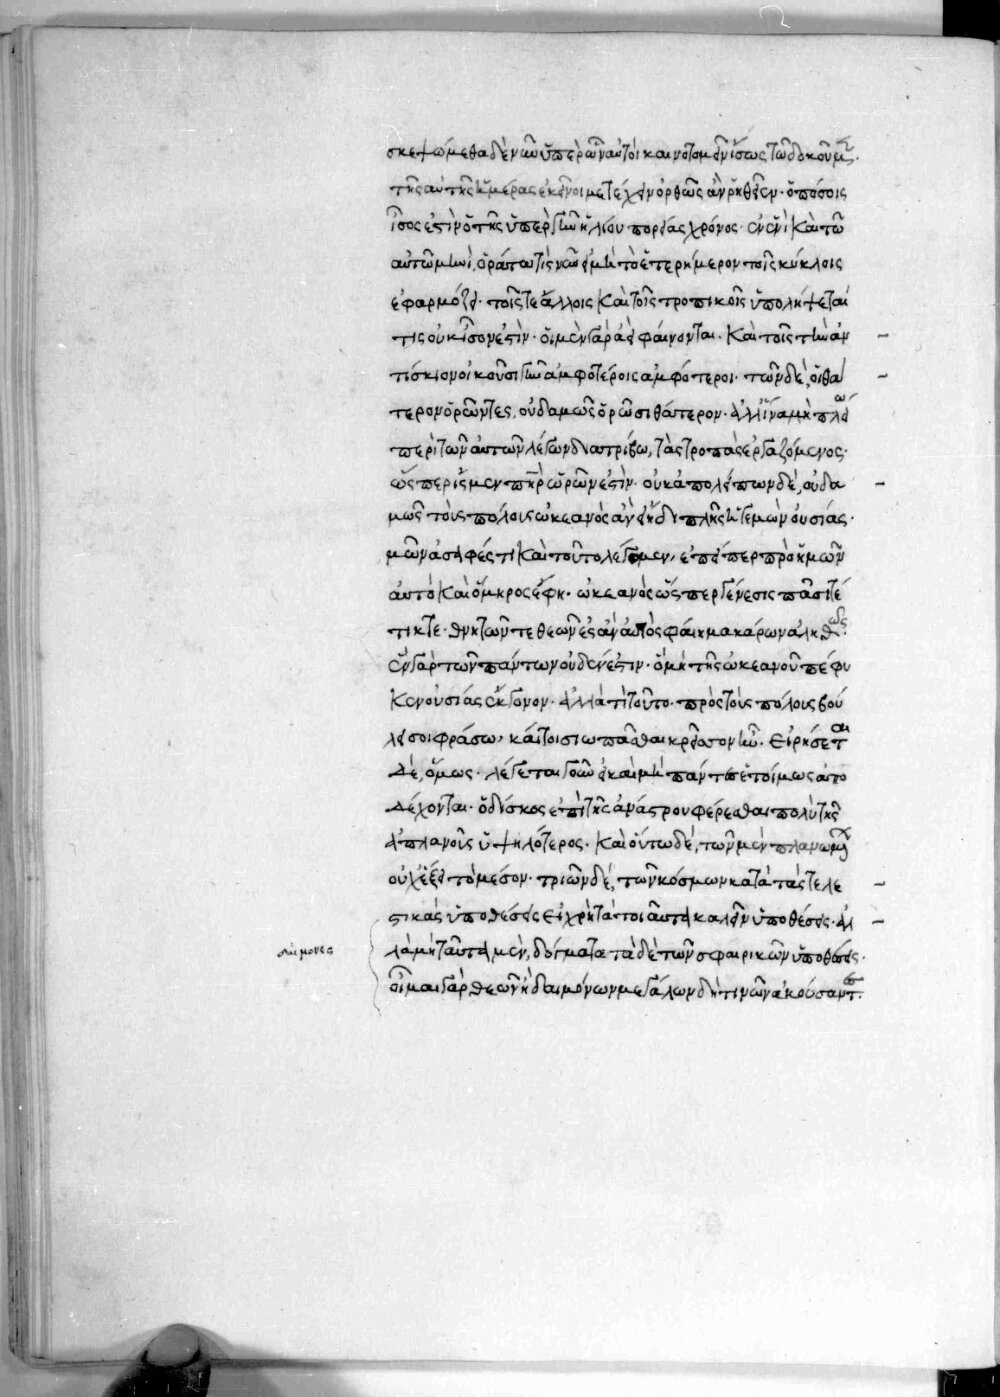 σκεψώμεθα δὲ νῦν ὑπὲρ ὧν αὐτοὶ καινοτομεῖν ἴσως τῷ δοκοῦμεν.
τῆς αὐτῆς ἡμέρας ἐκεῖνοι μετέχειν ὀρθῶς ἂν ῥηθεῖεν. ὁπόσοις
ἴσος ἐστὶν ὁ τῆς ὑπὲρ γῆν ἡλίου πορείας χρόνος. ἐν ἑνὶ καὶ τῷ
αὐτῷ μηνί. ὁράτω τις νῦν εἰ μὴ τὸ ἑτερήμερον τοῖς κύκλοις
ἐφαρμόζει. τοῖς τε ἄλλοις καὶ τοῖς τροπικοῖς ὑπολήψεταί
τις οὐκ ἴσον ἐστίν. οἱ μὲν γὰρ ἀεὶ φαίνονται. καὶ τοῖς τὴν ἀν
τίσκιον οἰκοῦσι γῆν ἀμφοτέροις ἀμφότεροι. τῶν δὲ, οἱ θά
τερον ὁρῶντες, οὐδαμῶς ὁρῶσι θάτερον. ἀλλ' ἵνα μὴ πλείω
περὶ τῶν αὐτῶν λέγων διατρίβω, τὰς τροπὰς ἐργαζόμενος.
ὥσπερ ἴσμεν πατὴρ ὡρῶν ἐστίν. οὐκ ἀπολείπων δὲ, οὐδα
μῶς τοὺς πόλους ὠκεανὸς ἂν εἴη διπλῆς ἡγεμὼν οὐσίας.
μῶν ἀσαφές τι καὶ τοῦτο λέγομεν, ἐπείπερ πρὸ ἡμῶν
αὐτὸ καὶ ὅμηρος ἔφη. ὠκεανὸς ὥσπερ γένεσις πάντεσσι
τέτυκται. θνητῶν τε θεῶν θ' ὡς ἂν αὐτὸς φαίη μακάρων ἀληθῶς.
ἓν γὰρ τῶν πάντων οὐδέν ἐστιν. ὃ μὴ τῆς ὠκεανοῦ πέφυ
κεν οὐσίας ἔκγονον. ἀλλὰ τί τοῦτο. πρὸς τοὺς πόλους βού
λει σοι φράσω, καίτοι σιωπᾶσθαι κρεῖσσον ἦν. εἰρήσεται
δὲ, ὅμως. λέγεται γοῦν εἰ καὶ μὴ πάντῃ ἑτοίμως ἀπο
δέχονται. ὁ δίσκος ἐπὶ τῆς ἀνάστρου φέρεσθαι πολὺ τῆς
ἀπλανοῦς ὑψηλότερος. καὶ οὕτω δὲ, τῶν μὲν πλανωμένων
οὐχ ἕξει τὸ μέσον. τριῶν δὲ, τῶν κόσμων κατὰ τὰς τελε
στικὰς ὑποθέσεις εἰ χρὴ τὰ τοιαῦτα καλεῖν ὑποθέσεις. ἀλ
δαίμονες
λὰ μὴ ταῦτα μὲν, δόγματα τὰ δὲ τῶν σφαιρικῶν ὑποθέσεις.
οἶμαι γὰρ θεῶν ἢ δαιμόνων μεγάλων δή τινων ἀκούσαντες.